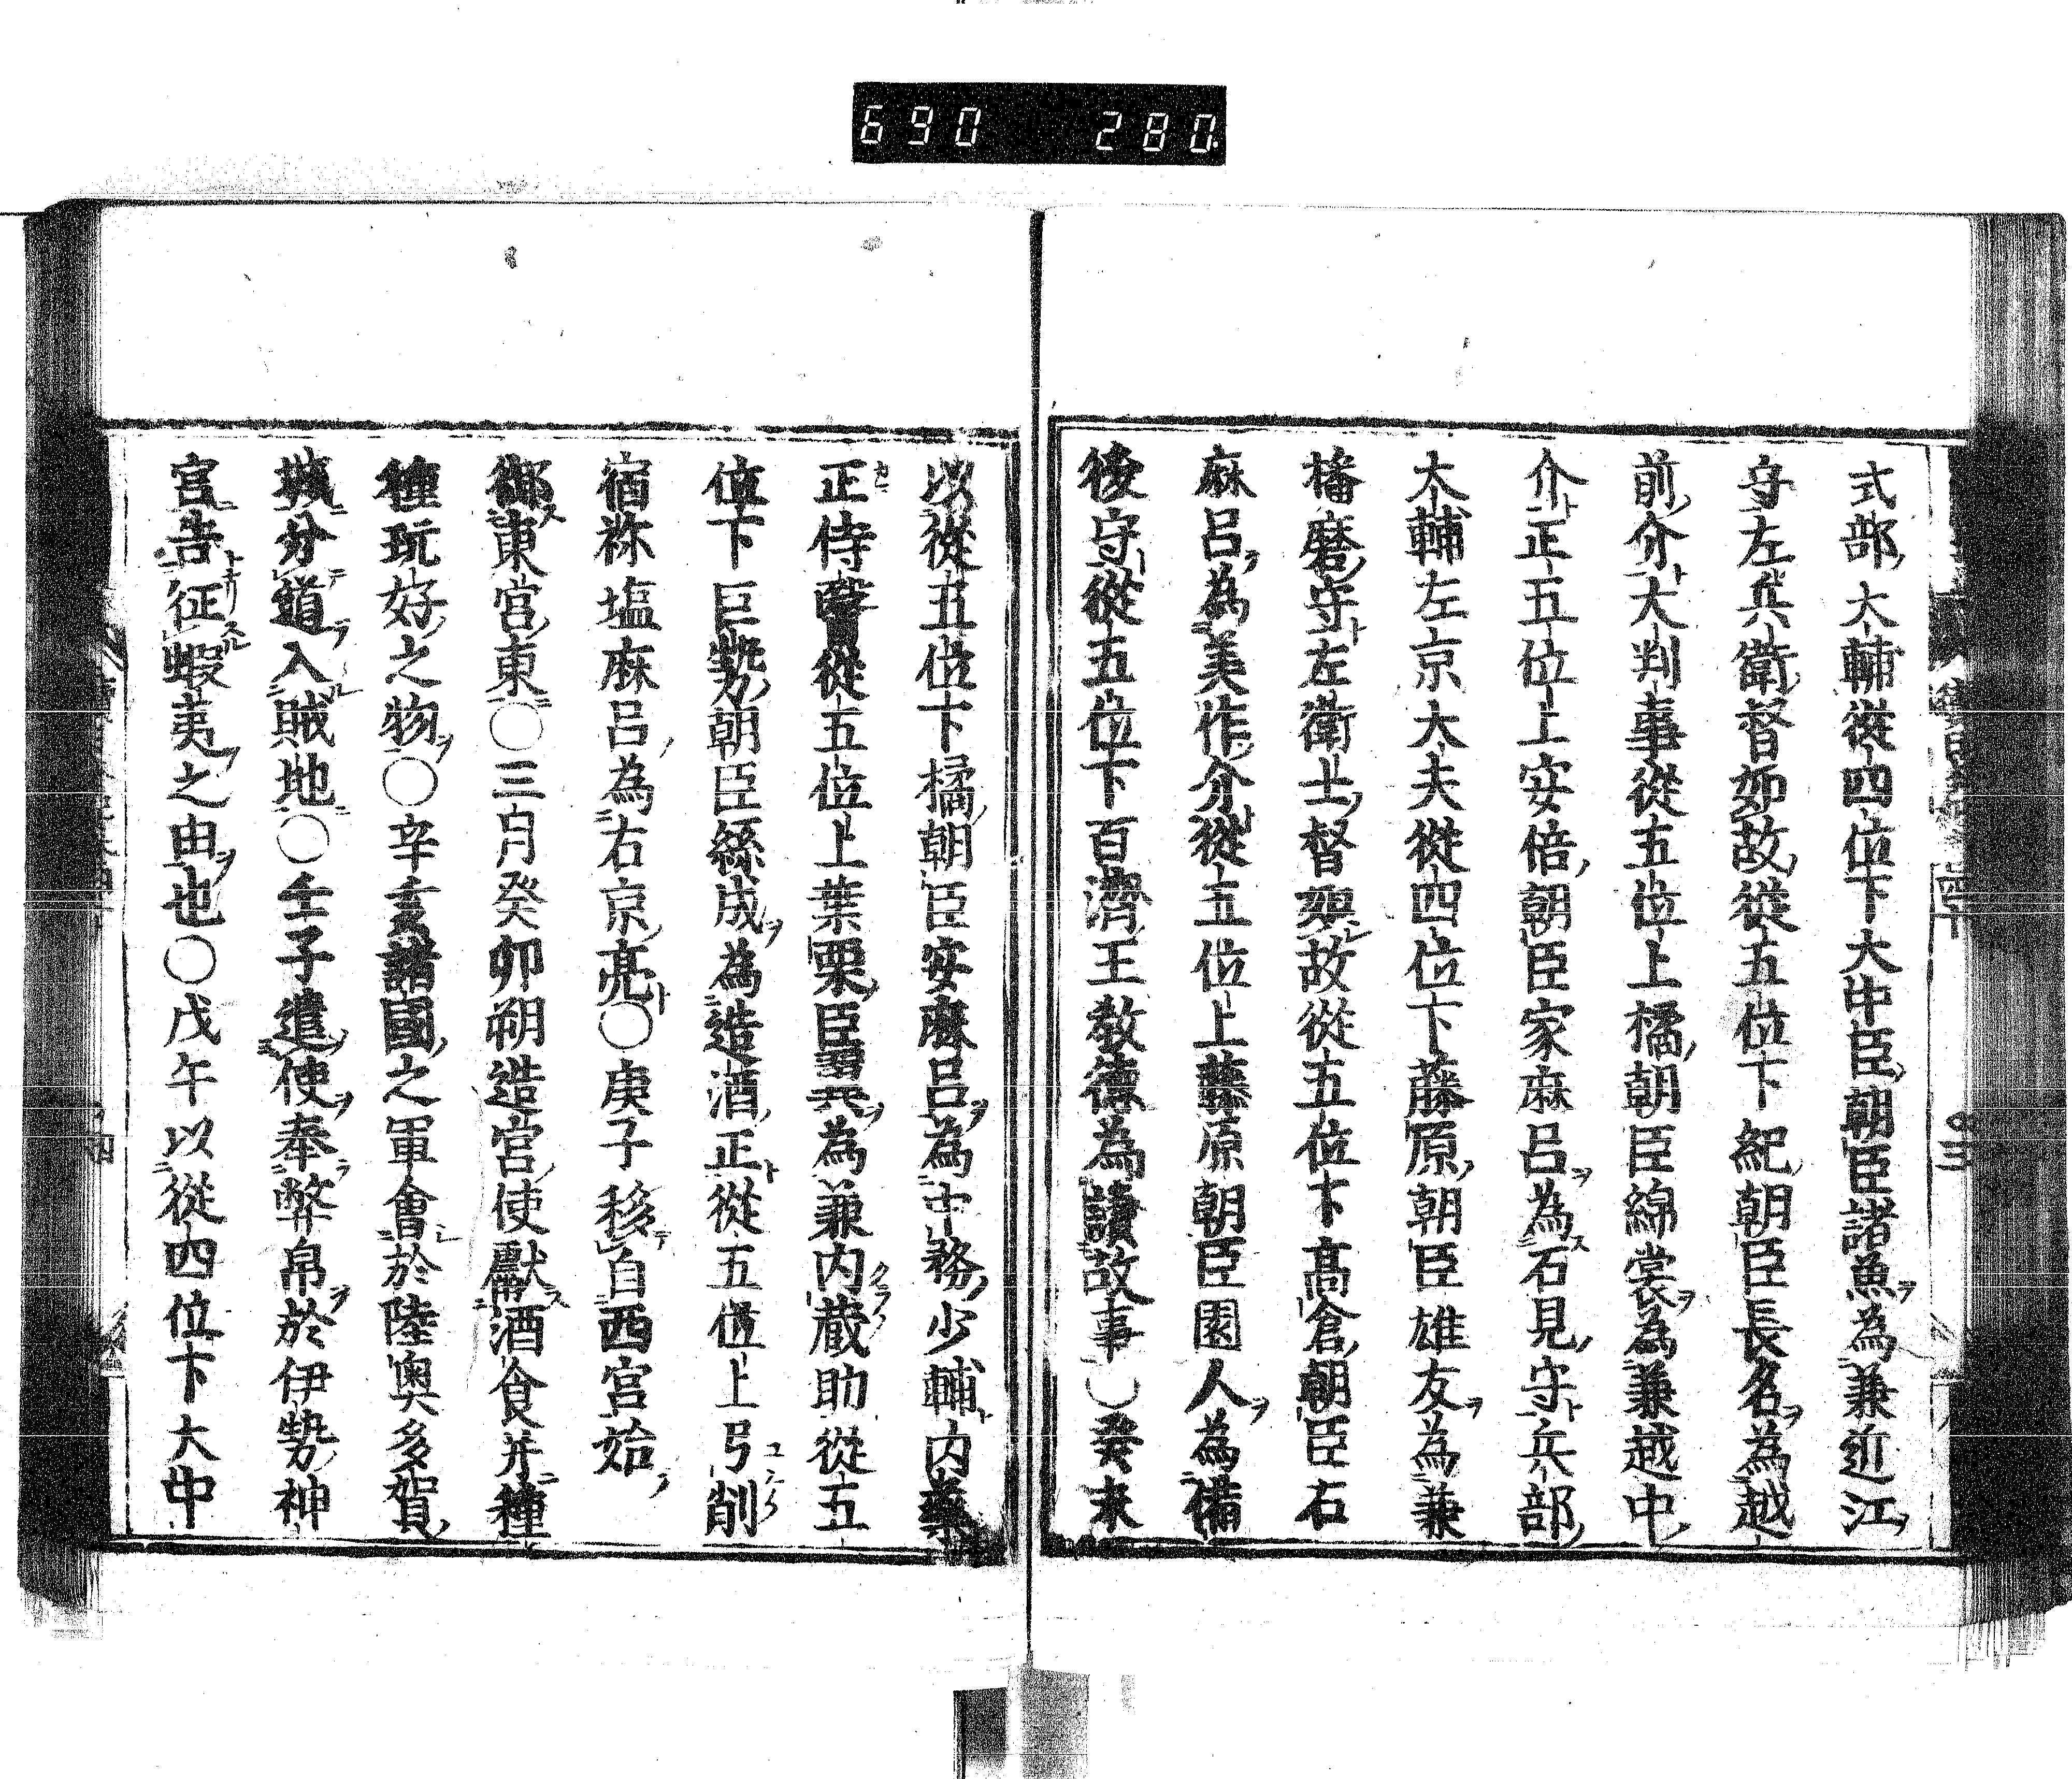 690 280
式部大輔從四位下大中臣朝臣諸魚為兼近江
守左兵衛督如故從五位下紀朝臣長名為越
前介大判事從五位上橘朝臣綿裳為兼越中
介正五位上安倍朝臣家麻呂為石見守兵部
大輔左京大夫從四位下藤原朝臣雄友為兼
播磨守左衛士督如故從五位下髙倉朝臣石
麻呂為美作介從五位上藤原朝臣園人為備
後守從五位下百濟王教德為讃故事○癸未
以從五位下橘朝臣安麻呂為中務少輔内藥
正侍醫從五位上葉栗臣翼為兼内蔵助從五
位下巨勢朝臣総成為造酒正從五位上弓削
宿祢塩麻呂為右京亮○庚子移自西宮始
御東宮東○三月癸卯朔造宮使獻酒食并種
種玩好之物○辛亥諸國之軍會於陸奥多賀
城分道入賊地○壬子遣使奉弊帛於伊勢神
宮告征蝦夷之由也○戊午以從四位下大中